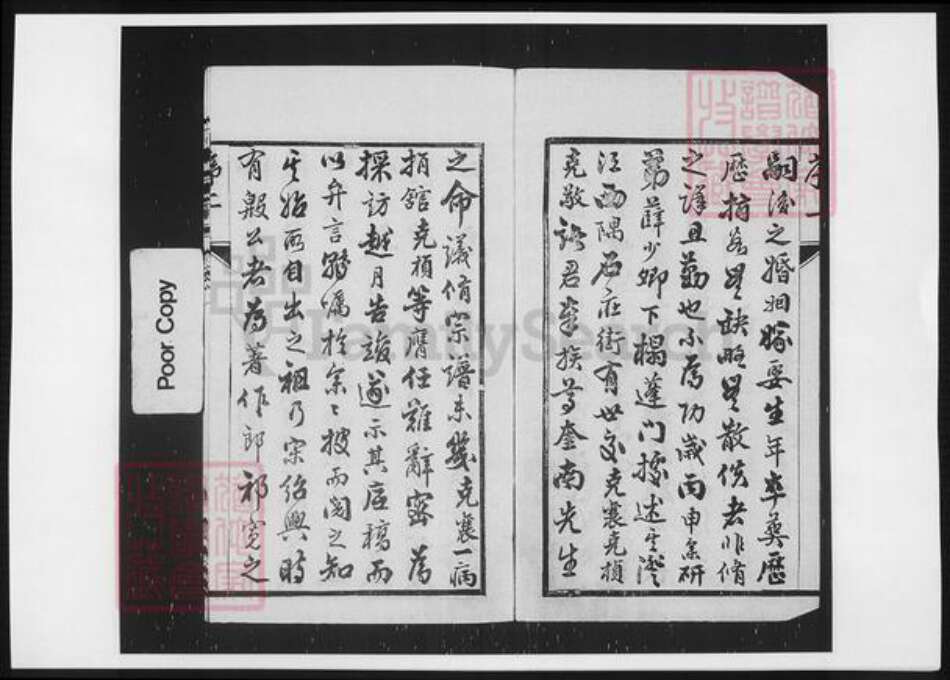 嗣後之婚姻嫁娶生年卒葬歷
歷捐若星缺略星散佚者非脩
之謹且勤也不為功歲丙申余研
弟薛少卿下榻蓬門據述其澄
江西隅石庄街有世交克襄克楨
克敬諸君奉族尊奎南先生
之命議脩宗譜未幾克襄一病
捐館克楨等膺任難辭密為
採訪越月告竣遂示其底稿而
以弁言聯囑於余余披而閱之知
其始所自出之祖乃宋紹興時
有毅公者為著作郎祁寬之
Poor Copy
FamilySearch